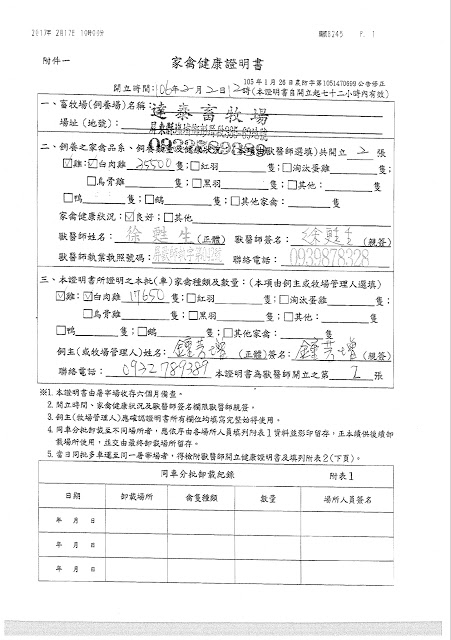 2017年 2月17日 10時03分
P. 1
附件一
家禽健康證明書
105年1月26日農防字第1051470699公告修正
開立時間:106年2月2日12時(本證明書自開立起七十二小時內有效)
一、畜牧場(飼養場)名稱:達泰畜牧場
場址(地號):屏東縣
二、飼養之家禽品系、飼養數量及健康狀況:(本項由獸醫師選填)共開立 2 張
☑雞:☑白肉雞 35500 隻;□紅羽 隻;□淘汰蛋雞 隻;
□烏骨雞 隻;□黑羽 隻;□其他: 隻
□鴨 隻;□鵝 隻;□其他家禽: 隻
家禽健康狀況:☑良好;□其他
獸醫師姓名:徐甦生(正體) 獸醫師簽名:徐甦生(親簽)
獸醫師執業執照號碼: 聯絡電話:0939878328
三、本證明書所證明之本批(車)家禽種類及數量:(本項由飼主或牧場管理人選填)
☑雞:☑白肉雞 17650 隻;□紅羽 隻;□淘汰蛋雞 隻;
□烏骨雞 隻;□黑羽 隻;□其他: 隻
□鴨 隻;□鵝 隻;□其他家禽: 隻
飼主(或牧場管理人)姓名:鍾芳增(正體)簽名:鍾芳增(親簽)
聯絡電話:0932789389 本證明書為獸醫師開立之第 2 張
※1. 本證明書由屠宰場收存六個月備查。
2. 開立時間、家禽健康狀況及獸醫師簽名欄限獸醫師親簽。
3. 飼主(牧場管理人)應確認證明書所有欄位均填寫完整始得使用。
4. 同車分批卸載至不同場所者,應依序由各場所人員填列附表1資料並影印留存,正本續供後續卸
載場所使用,並交由最終卸載場所留存。
5. 當日同批多車運至同一屠宰場者,得檢附獸醫師開立健康證明書及填列附表2(下頁)。
同車分批卸載紀錄 附表1
日期 卸載場所 禽隻種類 數量 場所人員簽名
年 月 日
年 月 日
年 月 日